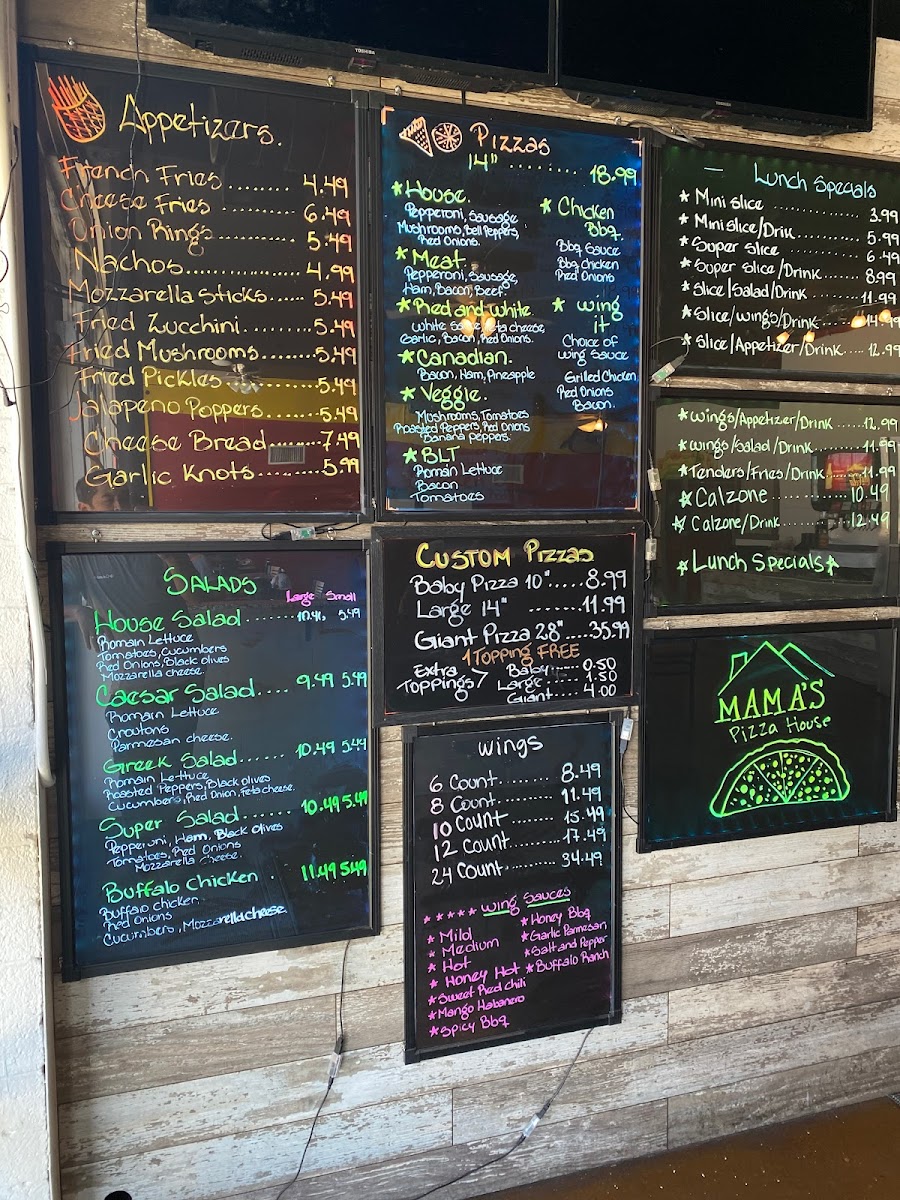 TOSHIBA
TOSHIBA
Appetizers.
French Fries ........ 4.49
Cheese Fries ......... 6.49
Onion Rings .......... 5.49
Nachos ............... 4.99
Mozzarella sticks ...... 5.49
Fried Zucchini .......... 5.49
Fried Mushrooms ....... 5.49
Fried Pickles ........... 5.49
Jalapeno Poppers ....... 5.49
Cheese Bread ........ 7.49
Garlic Knots ......... 5.99
Pizzas
14" ......... 18.99
*House.
Pepperoni, Sausage
Mushrooms, Bell Peppers,
Red Onions.
*Meat.
Pepperoni, Sausage,
Ham, Bacon, Beef.
*Red and White
White sauce, feta cheese
Garlic, Bacon, Red Onions.
*Canadian.
Bacon, Ham, Pineapple
*Veggie.
Mushrooms, Tomatoes
Roasted Peppers, Red Onions
Banana peppers.
*BLT
Romain Lettuce
Bacon
Tomatoes
*Chicken
Bbq.
Bbq Sauce
Bbq Chicken
Red Onions
*wing
it
Choice of
wing sauce
Grilled Chicken
Red Onions
Bacon.
Lunch Specials
*Mini slice ............... 3.99
*Mini slice/Drink ......... 5.99
*Super slice ............. 6.49
*Super slice/Drink ....... 8.99
*slice/Salad/Drink ....... 11.99
*Slice/wings/Drink ....... 14.99
*Slice/Appetizer/Drink ..... 12.99
*wings/Appetizer/Drink ..... 12.99
*wings/salad/Drink ...... 11.99
*Tenders/Fries/Drink ...... 11.99
*Calzone ........... 10.49
*Calzone/Drink .......... 12.49
*Lunch Specials*
SALADS
Large Small
House Salad ....... 10.49 5.49
Romain Lettuce
Tomatoes, Cucumbers
Red Onions, Black olives
Mozzarella cheese.
Caesar Salad .... 9.49 5.49
Romain Lettuce
Croutons
Parmesan cheese.
Greek Salad ...... 10.49 5.49
Romain Lettuce
Roasted Peppers, Black olives
Cucumbers, Red Onion, Feta cheese.
Super Salad ...... 10.49 5.49
Pepperoni, Ham, Black Olives
Tomatoes, Red Onions
Mozzarella Cheese.
Buffalo Chicken . 11.49 5.49
Buffalo chicken.
Red Onions
Cucumbers, Mozzarella cheese.
CUSTOM PIZZAS
Baby Pizza 10" ..... 8.99
Large 14" ....... 11.99
Giant Pizza 28" .... 35.99
1 Topping FREE
Extra Toppings
Baby ...... 0.50
Large ..... 1.50
Giant ..... 4.00
wings
6 Count ......... 8.49
8 Count ......... 11.49
10 Count ........ 15.49
12 Count ........ 17.49
24 Count ........ 34.49
***** wing Sauces
*Mild
*Medium
*Hot
*Honey Hot
*Sweet Red Chili
*Mango Habanero
*Spicy Bbq
*Honey Bbq
*Garlic Parmesan
*Salt and Pepper
*Buffalo Ranch
MAMA'S
Pizza House